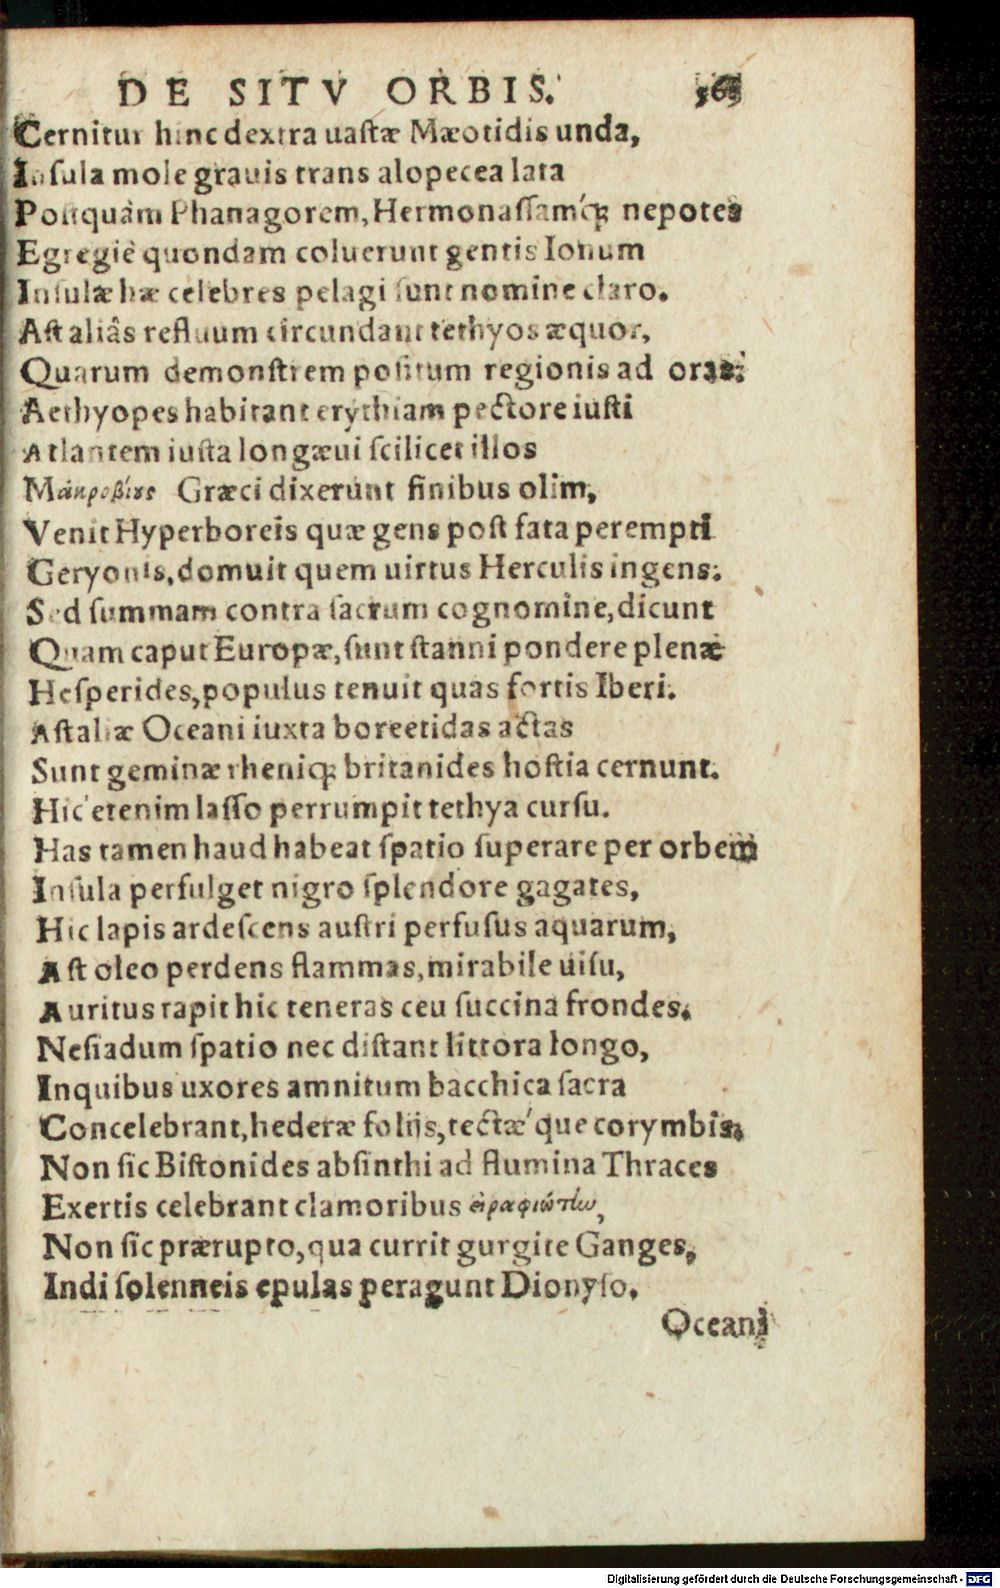 DE SITV ORBIS. 363
Cernitur hinc dextra uastæ Mæotidis unda,
Insula mole grauis trans alopecea lata
Postquàm Phanagorem, Hermonassamq́; nepotes
Egregiè quondam coluerunt gentis Ionum
Insulæ hæ celebres pelagi sunt nomine claro.
Ast aliâs refluum circundant tethyos æquor,
Quarum demonstrem positum regionis ad oras:
Aethyopes habitant erythiam pectore iusti
Atlantem iuxta longæui scilicet illos
Μάκροβίȣς Græci dixerunt finibus olim,
Venit Hyperboreis quæ gens post fata perempti
Geryonis, domuit quem uirtus Herculis ingens:
Sed summam contra sacrum cognomine, dicunt
Quam caput Europæ, sunt stanni pondere plenæ
Hesperides, populus tenuit quas fortis Iberi.
Ast aliæ Oceani iuxta boreetidas actas
Sunt geminæ rheniq; britanides hostia cernunt.
Hic etenim lasso perrumpit tethya cursu.
Has tamen haud habeat spatio superare per orbem
Insula perfulget nigro splendore gagates,
Hic lapis ardescens austri perfusus aquarum,
Ast oleo perdens flammas, mirabile uisu,
Auritus rapit hic teneras ceu succina frondes.
Nesiadum spatio nec distant littora longo,
Inquibus uxores amnitum bacchica sacra
Concelebrant, hederæ foliis, tectæ'que corymbis,
Non sic Bistonides absinthi ad flumina Thraces
Exertis celebrant clamoribus εἰραφιώτην,
Non sic prærupto, qua currit gurgite Ganges,
Indi solenneis epulas peragunt Dionyso.
Oceani
Digitalisierung gefördert durch die Deutsche Forschungsgemeinschaft - DFG